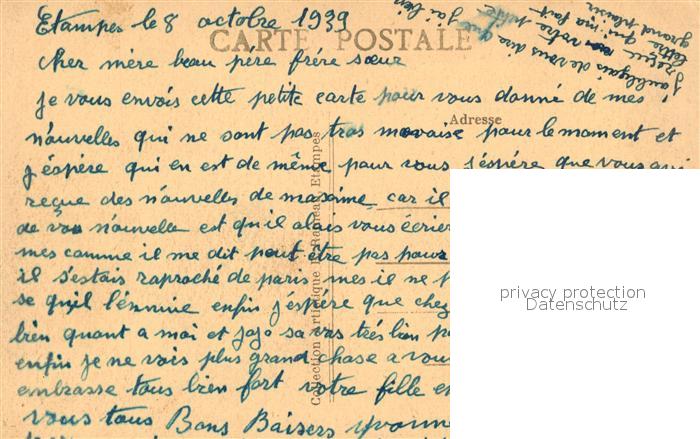 Etampes le 8 octobre 1939
CARTE POSTALE
Cher mère beau père frére sœur
je vous envois cette petite carte pour vous donné de mes
Adresse
n'ouvelles qui ne sont pas tros movaise pour le moment et
j'éspère qui en est de même pour vous j'éspére que vous
reçue des n'ouvelles de maxime car il
de vos n'ouvelle est qu'il alais vous écrier
mes comme il me dit peut être pas pour
il s'estais raproché de paris mes il ne
se qu'il l'ennuie enfin j'éspére que chez
bien quant a moi et jojo sa vas trés bien
enfin je ne vois plus grand chose a vous
embrasse tous bien fort votre fille et
vous tous Bons Baisers yvonne
j'oubliais de vous dire que j'ai bien
reçue votre petite
lettre qui m'a fait
grand plaisir
Collection Artistique L. Rameau, Etampes
privacy protection
Datenschutz